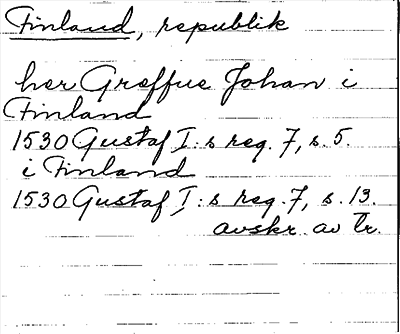 Finland, republik
her Greffue Johan i
Finland
1530 Gustaf I:s reg. 7, s. 5.
i Finland
1530 Gustaf I:s reg. 7, s. 13.
avskr. av Tr.